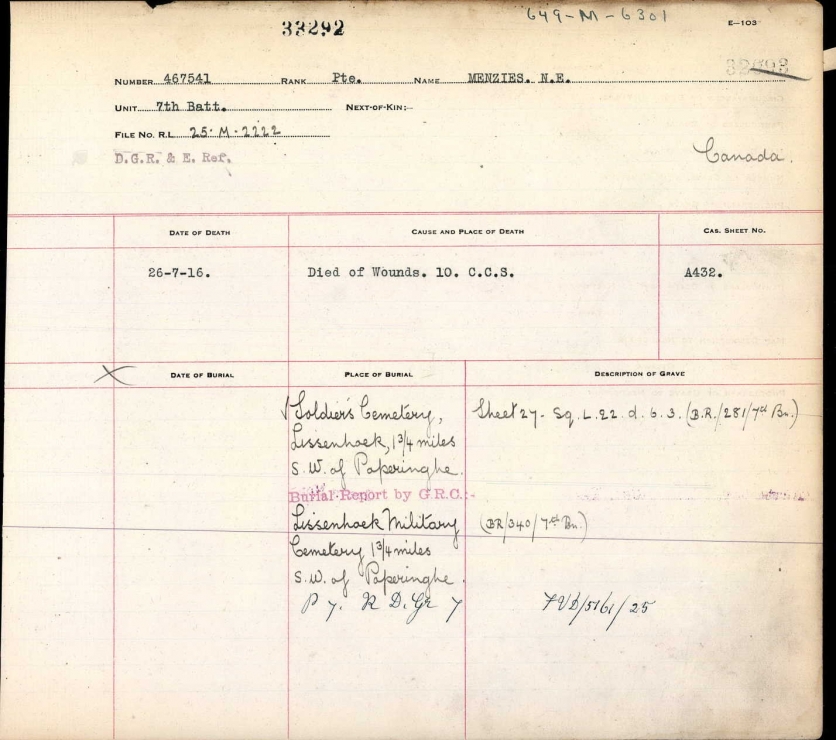 33292 649-M-6301 E-103
NUMBER 467541 RANK Pte. NAME MENZIES. N.E.
UNIT 7th Batt. NEXT-OF-KIN:-
FILE NO. R.L. 25-M-2222
D.G.R. & E. Ref. Canada.
DATE OF DEATH CAUSE AND PLACE OF DEATH CAS. SHEET NO.
26-7-16. Died of Wounds. 10. C.C.S. A432.
X DATE OF BURIAL PLACE OF BURIAL DESCRIPTION OF GRAVE
√ Soldier's Cemetery, Sheet 27- Sq. L.22. d. 6. 3. (B.R./281/7th Bn.)
Lissenhoek, 1¾ miles
S.W. of Poperinghe.
Burial Report by G.R.C.:-
Lissenhoek Military (BR/340/7th Bn.)
Cemetery 1¾ miles
S.W. of Poperinghe.
P 7. R D. Gr 7 7VD/5161/25